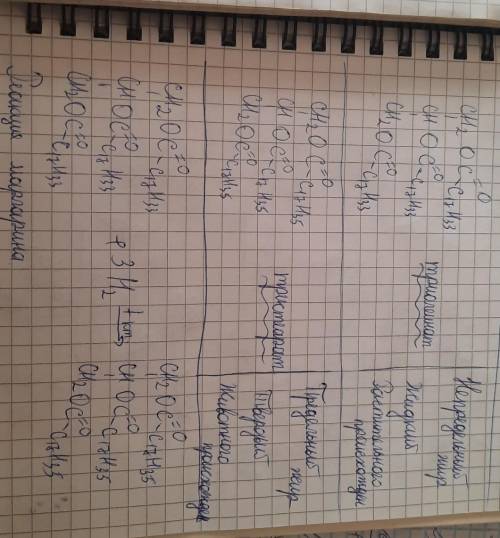 CH2 O C =O C17H33
CH O C =O C17H33
CH2 O C =O C17H33
триолеинат
Непредельный жир
Жидкий
Растительного
CH2 O C =O C17H35
CH O C =O C17H35
CH2 O C =O C17H35
тристеарат
Предельный жир
Твердый
Животного
CH2 O C =O C17H33
CH O C =O C17H33
CH2 O C =O C17H33
+ 3 H2
t kat
CH2 O C =O C17H35
CH O C =O C17H35
CH2 O C =O C17H35
маргарина